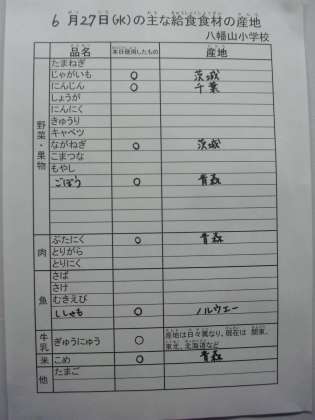 6月27日(水)の主な給食食材の産地
八幡山小学校
品名 本日使用したもの 産地
野菜・果物
たまねぎ
じゃがいも ○ 茨城
にんじん ○ 千葉
しょうが
にんにく
きゅうり
キャベツ
ながねぎ ○ 茨城
こまつな
もやし
ごぼう ○ 青森
肉
ぶたにく ○ 青森
とりがら
とりにく
魚
さば
さけ
むきえび
ししゃも ○ ノルウェー
牛乳 ぎゅうにゅう ○ 産地は日々異なり、現在は 関東、
東北、北海道など
米 こめ ○ 青森
他 たまご